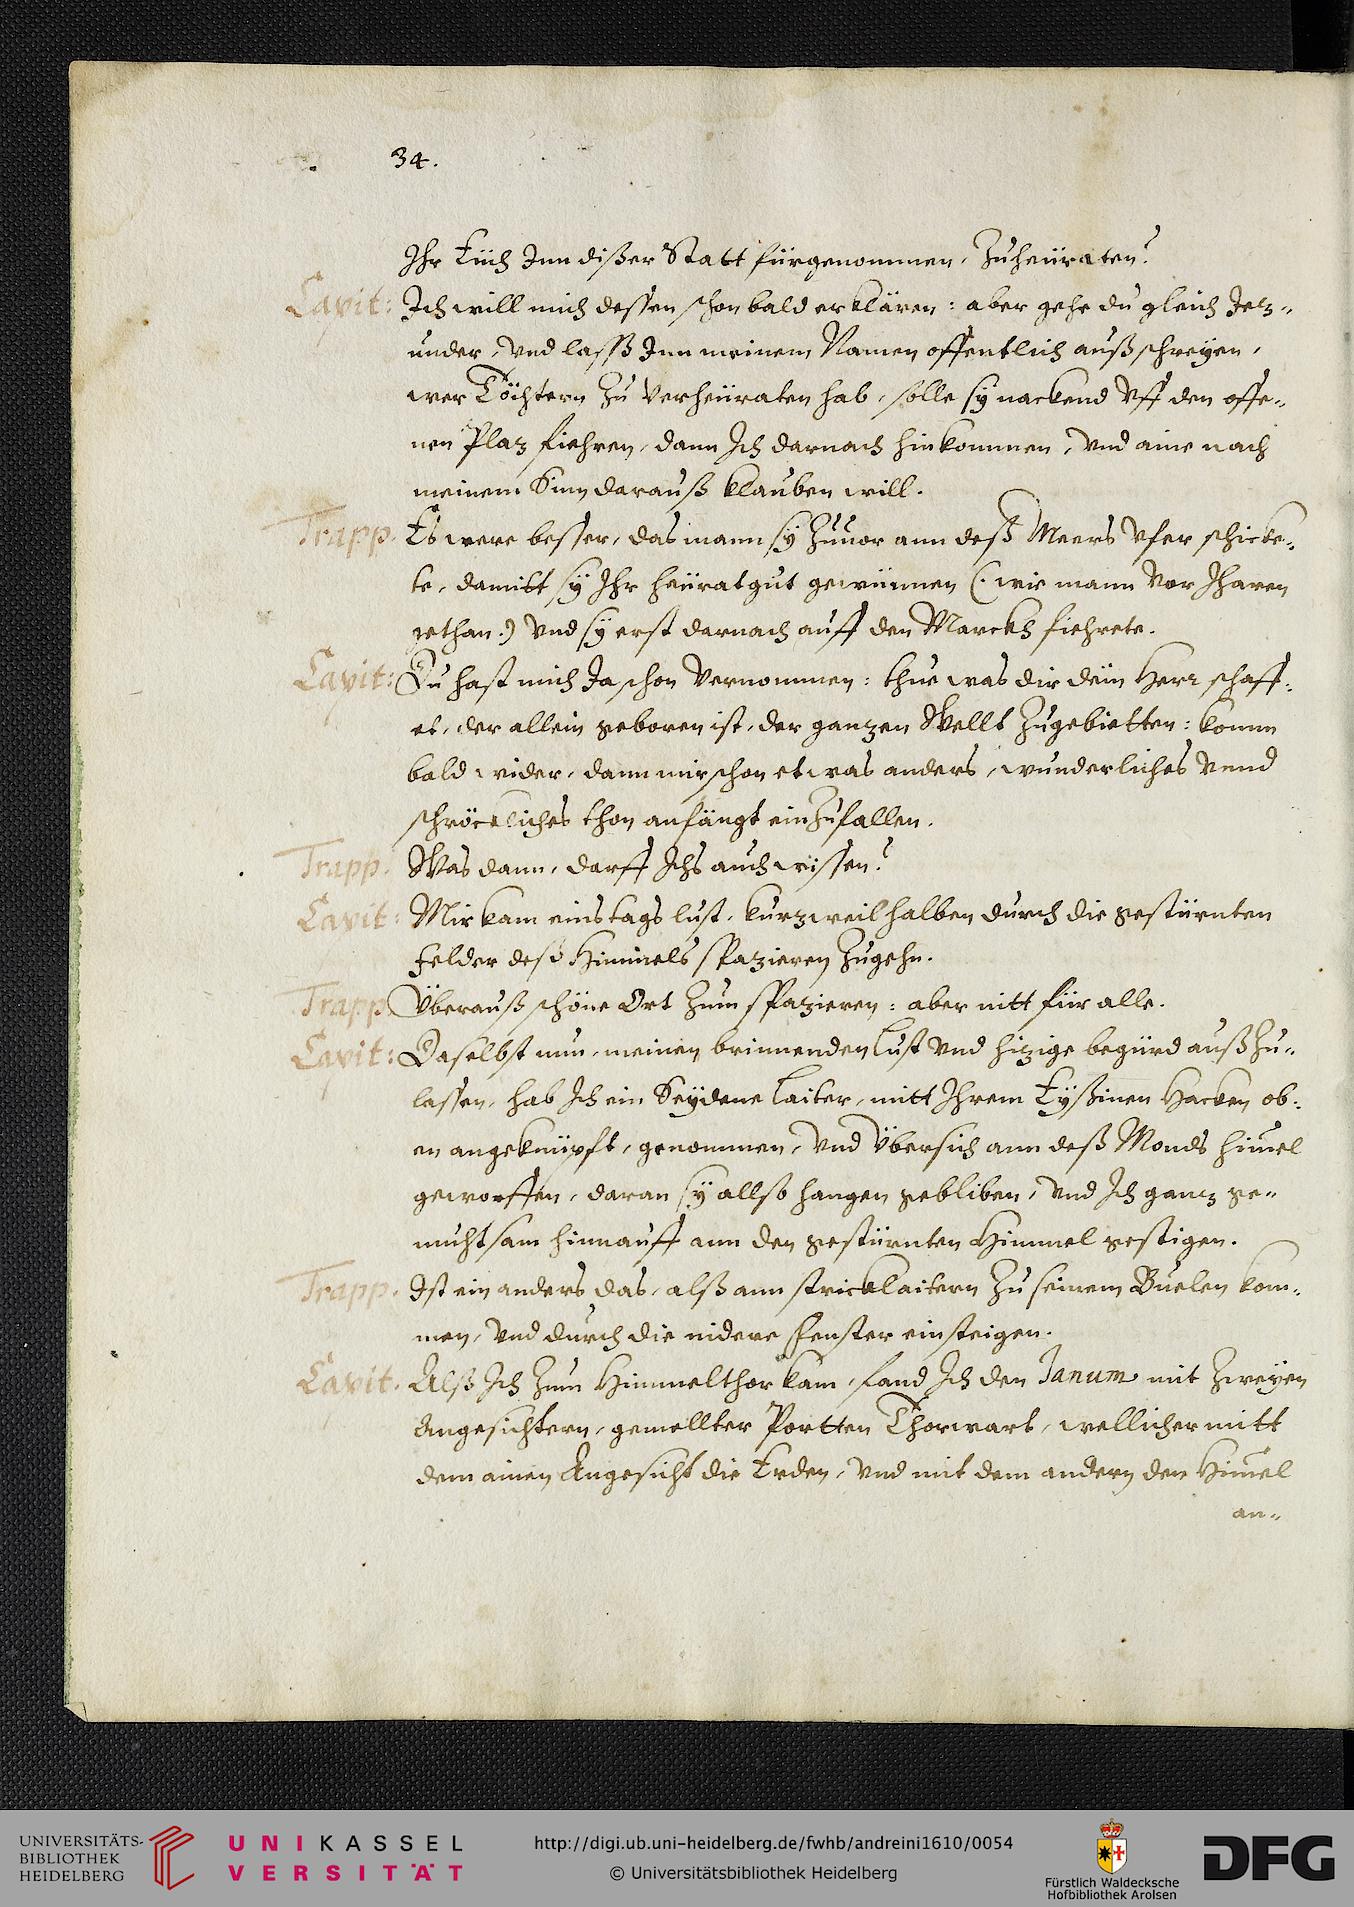 34.
Ihr Eüch Inn dißer Statt fürgenommen, Zuheüraten?
Capit: Ich will mich dessen schon bald erklären: aber gehe du gleich Jetz-
under, Vnd lassß Inn meinem Namen offentlich außschreyen,
wer Töchtern Zu Verheüraten hab, solle sy nackend Vff den offe-
nen Plaz fiehren, dann Ich darnach hinkommen, Vnd aine nach
meinem Sinn darauß klauben will.
Trapp. Es were besser, das mann sy Zuuor ann deß Meers Vfer schicke-
te, damitt sy Ihr heüratgut gewünnen (: wie mann Vor Jharen
gethan:) Vnd sy erst darnach auff den Marckh fiehrete.
Capit: Du hast mich Ja schon Vernommen: thue was dir dein Herr schaff-
et, der allein geboren ist, der ganzen Wellt Zugebietten: komm
bald wider, dann mir schon etwas anders, wunderliches Vnnd
schröckliches thon anfängt einZufallen.
Trapp. Was dann, darff Ichs auch wissen?
Capit: Mir kam eins tags lust, kurzweil halben durch die gestürnten
Felder deß Himmels spazieren Zugehn.
Trapp. Überauß schöne Ort Zum spazieren: aber nitt für alle.
Capit: Daselbst nun, meinen brinnenden Lust Vnd hizige begürd außZu-
lassen, hab Ich ein Seydene Laiter, mitt Ihrem Eyßinen Hacken ob-
en angeknüpft, genommen, Vnd Übersich ann deß Monds himel
geworffen, daran sy allso hangen gebliben, Vnd Ich ganz ge-
muhtsam hinnauff ann den gestürnten Himmel gestigen.
Trapp. Ist ein anders das, alß ann stricklaitern Zu seinem Buelen kom-
men, Vnd durch die nidere Fenster einsteigen.
Capit. Alß Ich Zum Himmelthor kam, fand Ich den Ianum mit Zweyen
Angesichtern, gemellter Portten Thorwart, wellicher mitt
dem ainen Angesicht die Erden, Vnd mit dem andern den Himel
an-
UNIVERSITÄTS-
BIBLIOTHEK
HEIDELBERG
UNIKASSEL
VERSITÄT
http://digi.ub.uni-heidelberg.de/fwhb/andreini1610/0054
© Universitätsbibliothek Heidelberg
Fürstlich Waldecksche
Hofbibliothek Arolsen
DFG